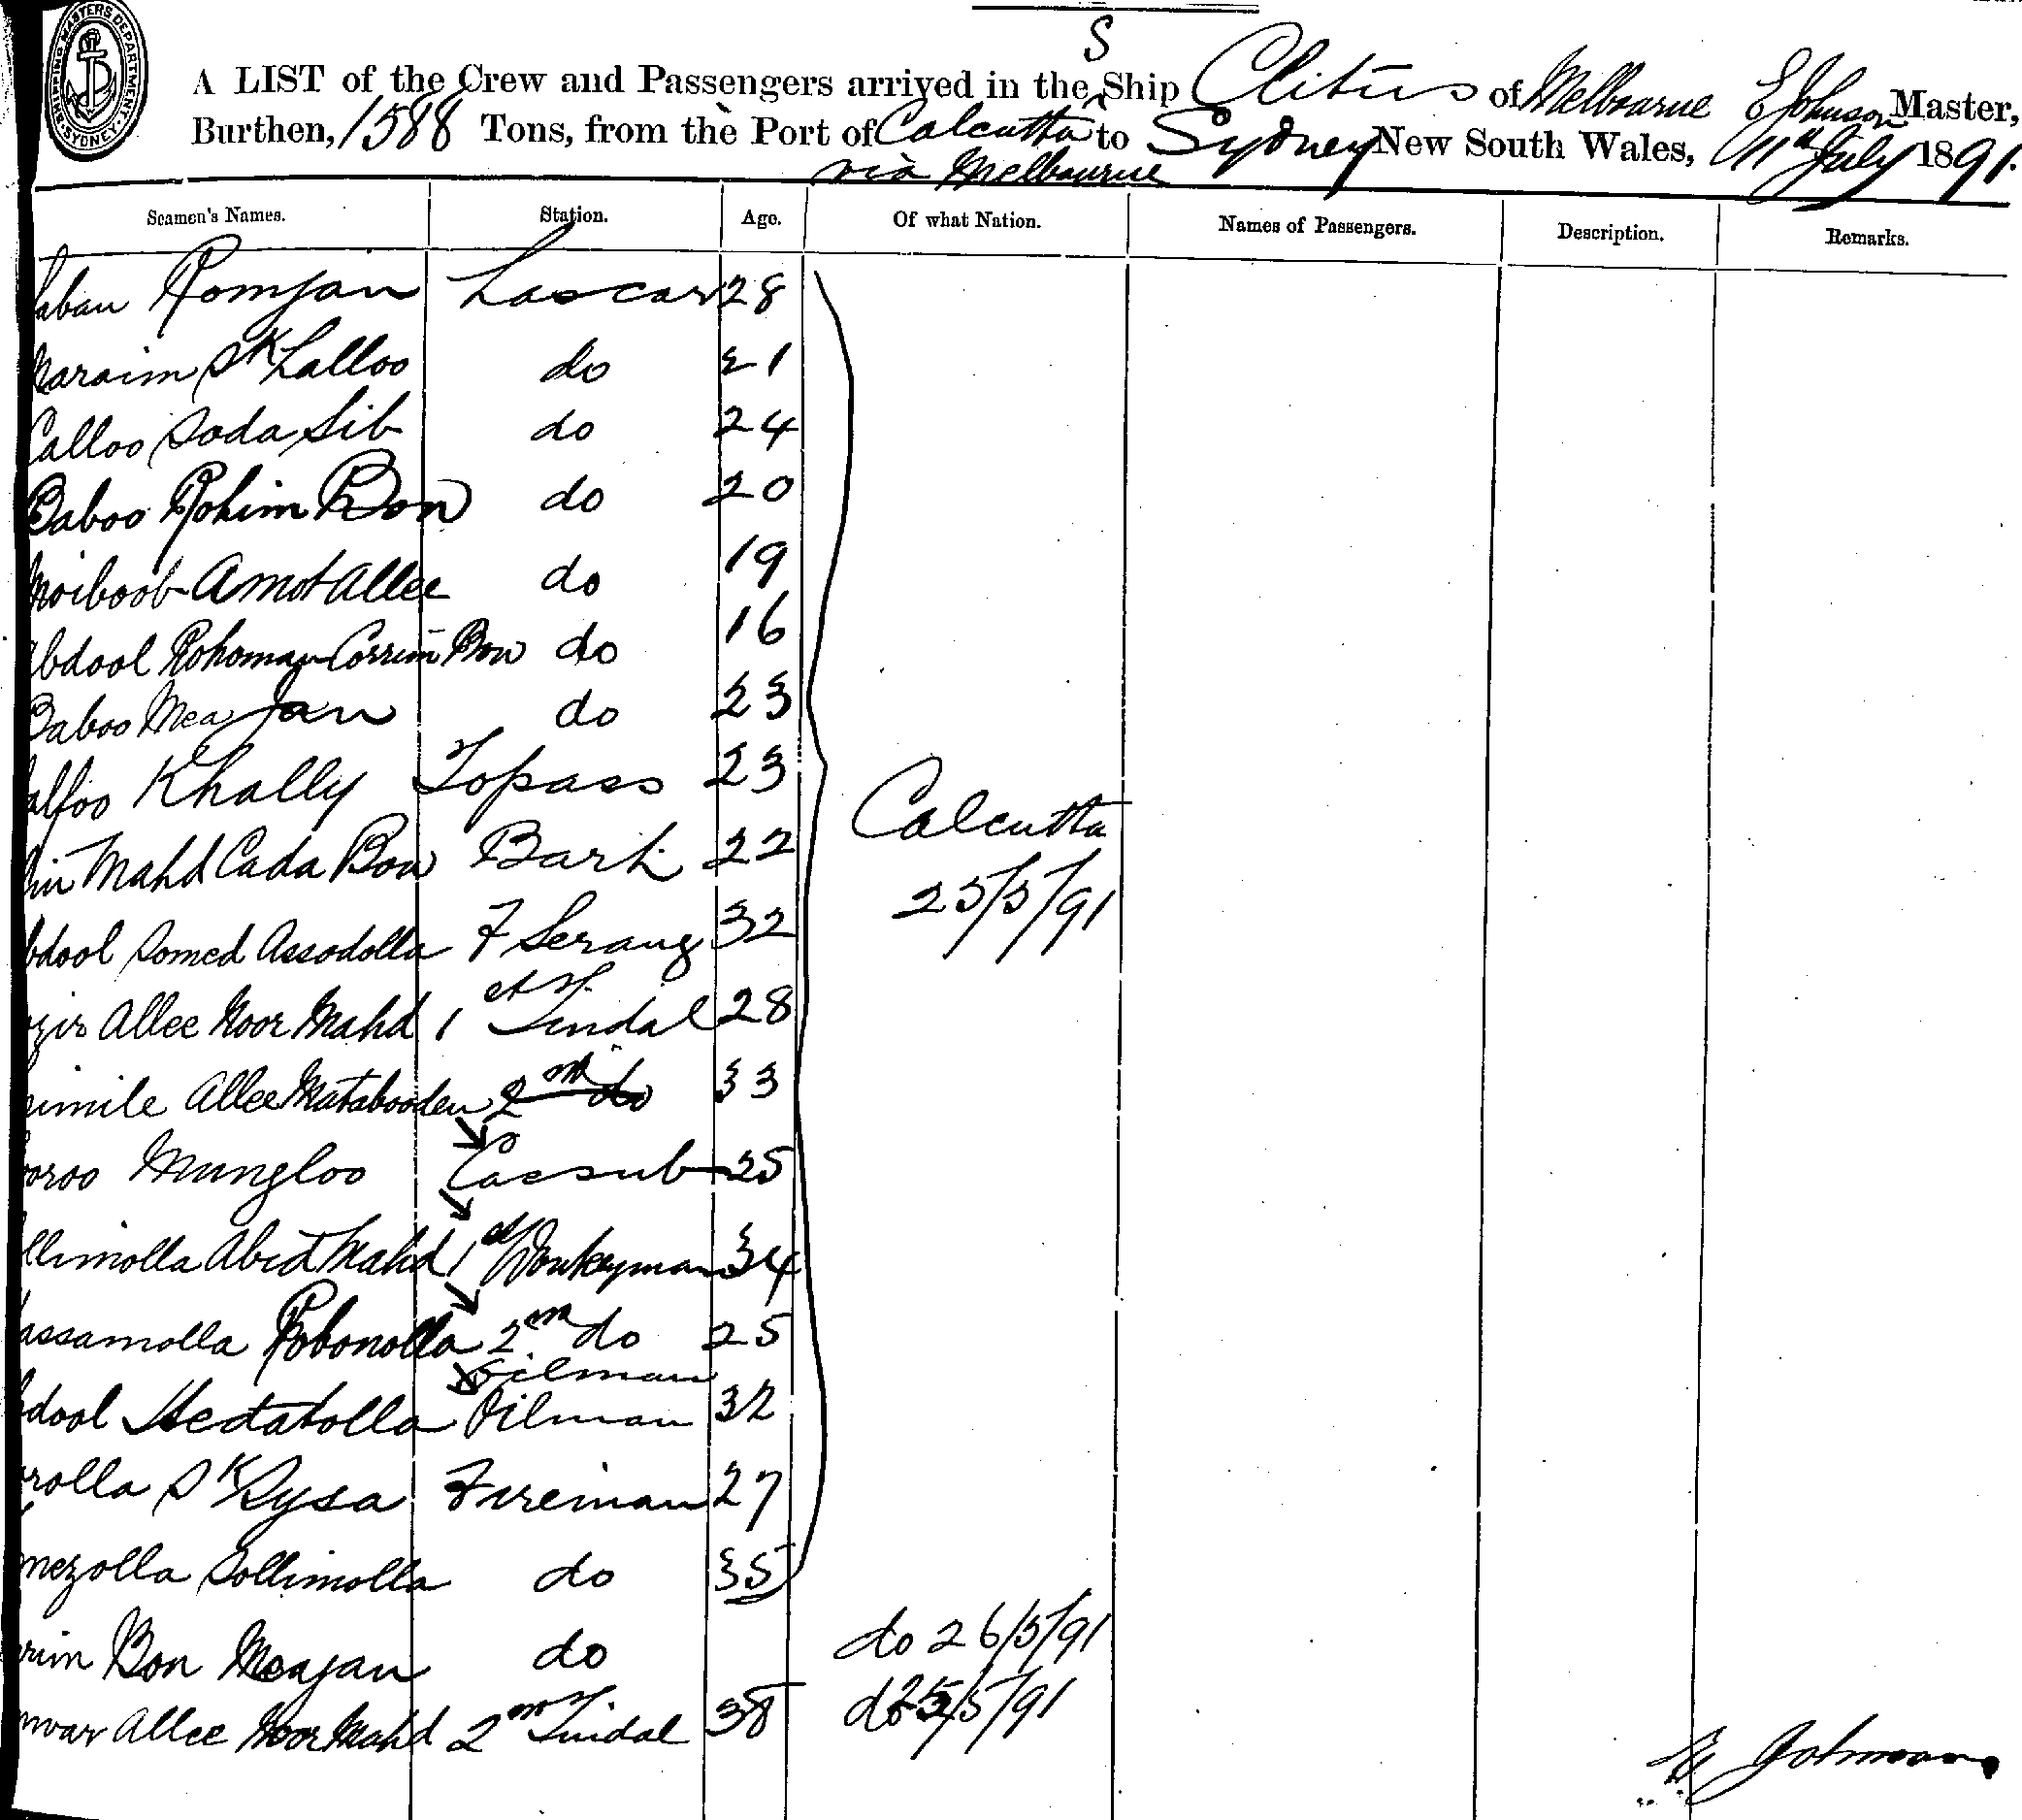 SHIPPING MASTERS DEPARTMENT SYDNEY
S
A LIST of the Crew and Passengers arrived in the Ship Clitus of Melbourne E Johnson Master,
Burthen, 1588 Tons, from the Port of Calcutta to Sydney New South Wales, 11th July 1891.
via Melbourne
Seamen's Names. Station. Age. Of what Nation. Names of Passengers. Description. Remarks.
aban Romjan Lascar 28
naraim Sk Lalloo do 21
Calloo Soda Sib do 24
Baboo Rohim Bon do 20
Moiboob Amot Allee do 19
bdool Rohoman Corrim Bon do 16
Baboo Meajan do 23
alfoo Khally Topass 23
Calcutta
Mahd Cada Bon 22
25/5/91
bdool Somed Assodolla F Serang 32
ozir Allee Noor Mahd 1st F. Tindal 28
Allee Matabooden 2nd do 33
oroo Mungloo Cassub 25
llimolla Abid Mahd 1st Donkeyman 34
assamolla Robonolla 2nd do 25
Oilman
dool Hedatolla Oilman 32
rolla Sk Sysa Fireman 27
mezolla Sollimolla do 35
rim Bon Meajan do do 26/5/91
nwar Allee Noor Mahd 2nd F. Tindal 38 do 25/5/91
E Johnson